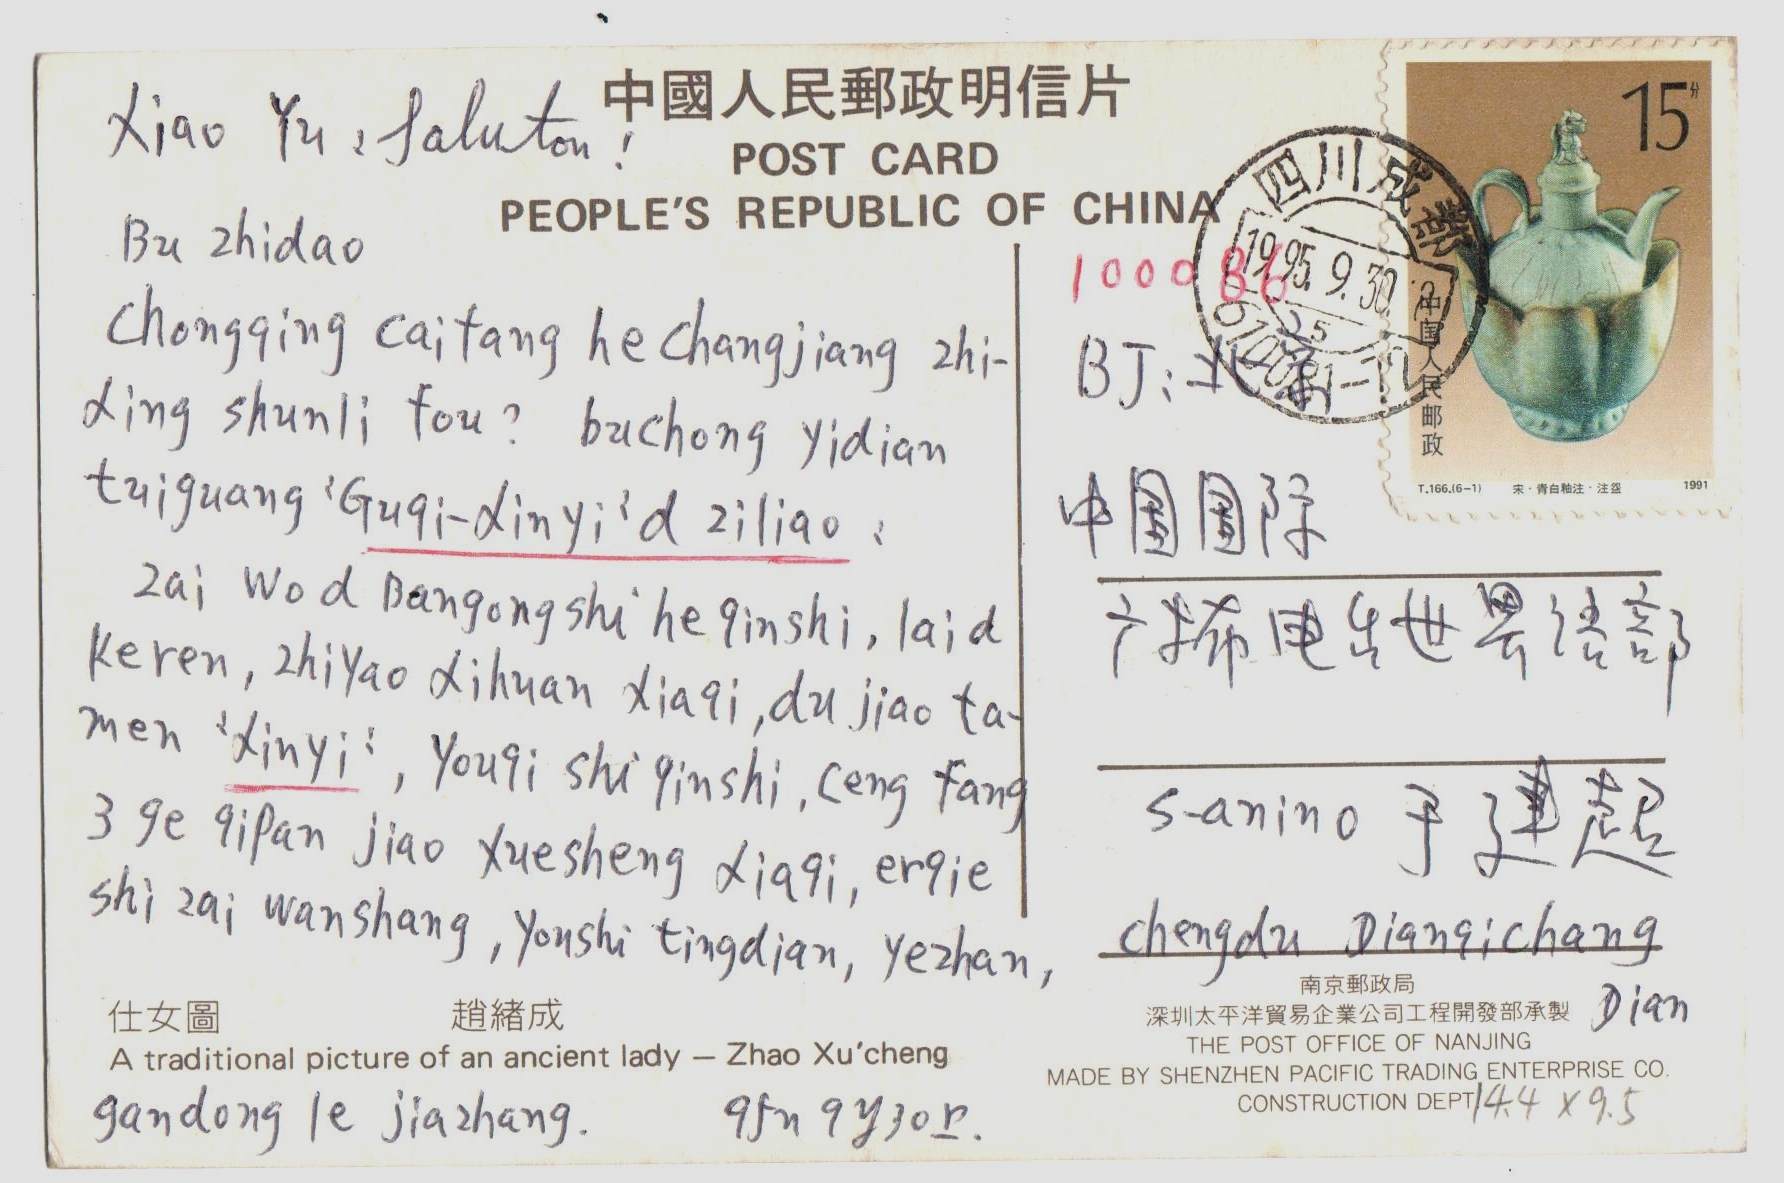 中國人民郵政明信片
POST CARD
PEOPLE'S REPUBLIC OF CHINA
Xiao Yu: Saluton!
Bu zhidao
Chongqing caifang he Changjiang zhi-
xing shunli fou? buchong yidian
tuiguang 'Guqi-xinyi' d ziliao:
zai wo d Bangongshi he qinshi, lai d
keren, zhiyao xihuan xiaqi, du jiao ta-
men 'xinyi', youqi shi qinshi, ceng fang
3 ge qipan jiao xuesheng xiaqi, erqie
shi zai wanshang, youshi tingdian, yezhan,
仕女圖 趙緒成
A traditional picture of an ancient lady — Zhao Xu'cheng
gandong le jiazhang. 95n 9y30r.
15分
中国人民邮政
T.166.(6-1) 宋·青白釉注·注盌 1991
四川成都
1995.9.30
610081-17
100086
BJ: 北京
中国国际
广播电台世界语部
S-anino 于建超
chengdu Dianqichang
Dian
南京郵政局
深圳太平洋貿易企業公司工程開發部承製
THE POST OFFICE OF NANJING
MADE BY SHENZHEN PACIFIC TRADING ENTERPRISE CO.
CONSTRUCTION DEPT
14.4 x 9.5